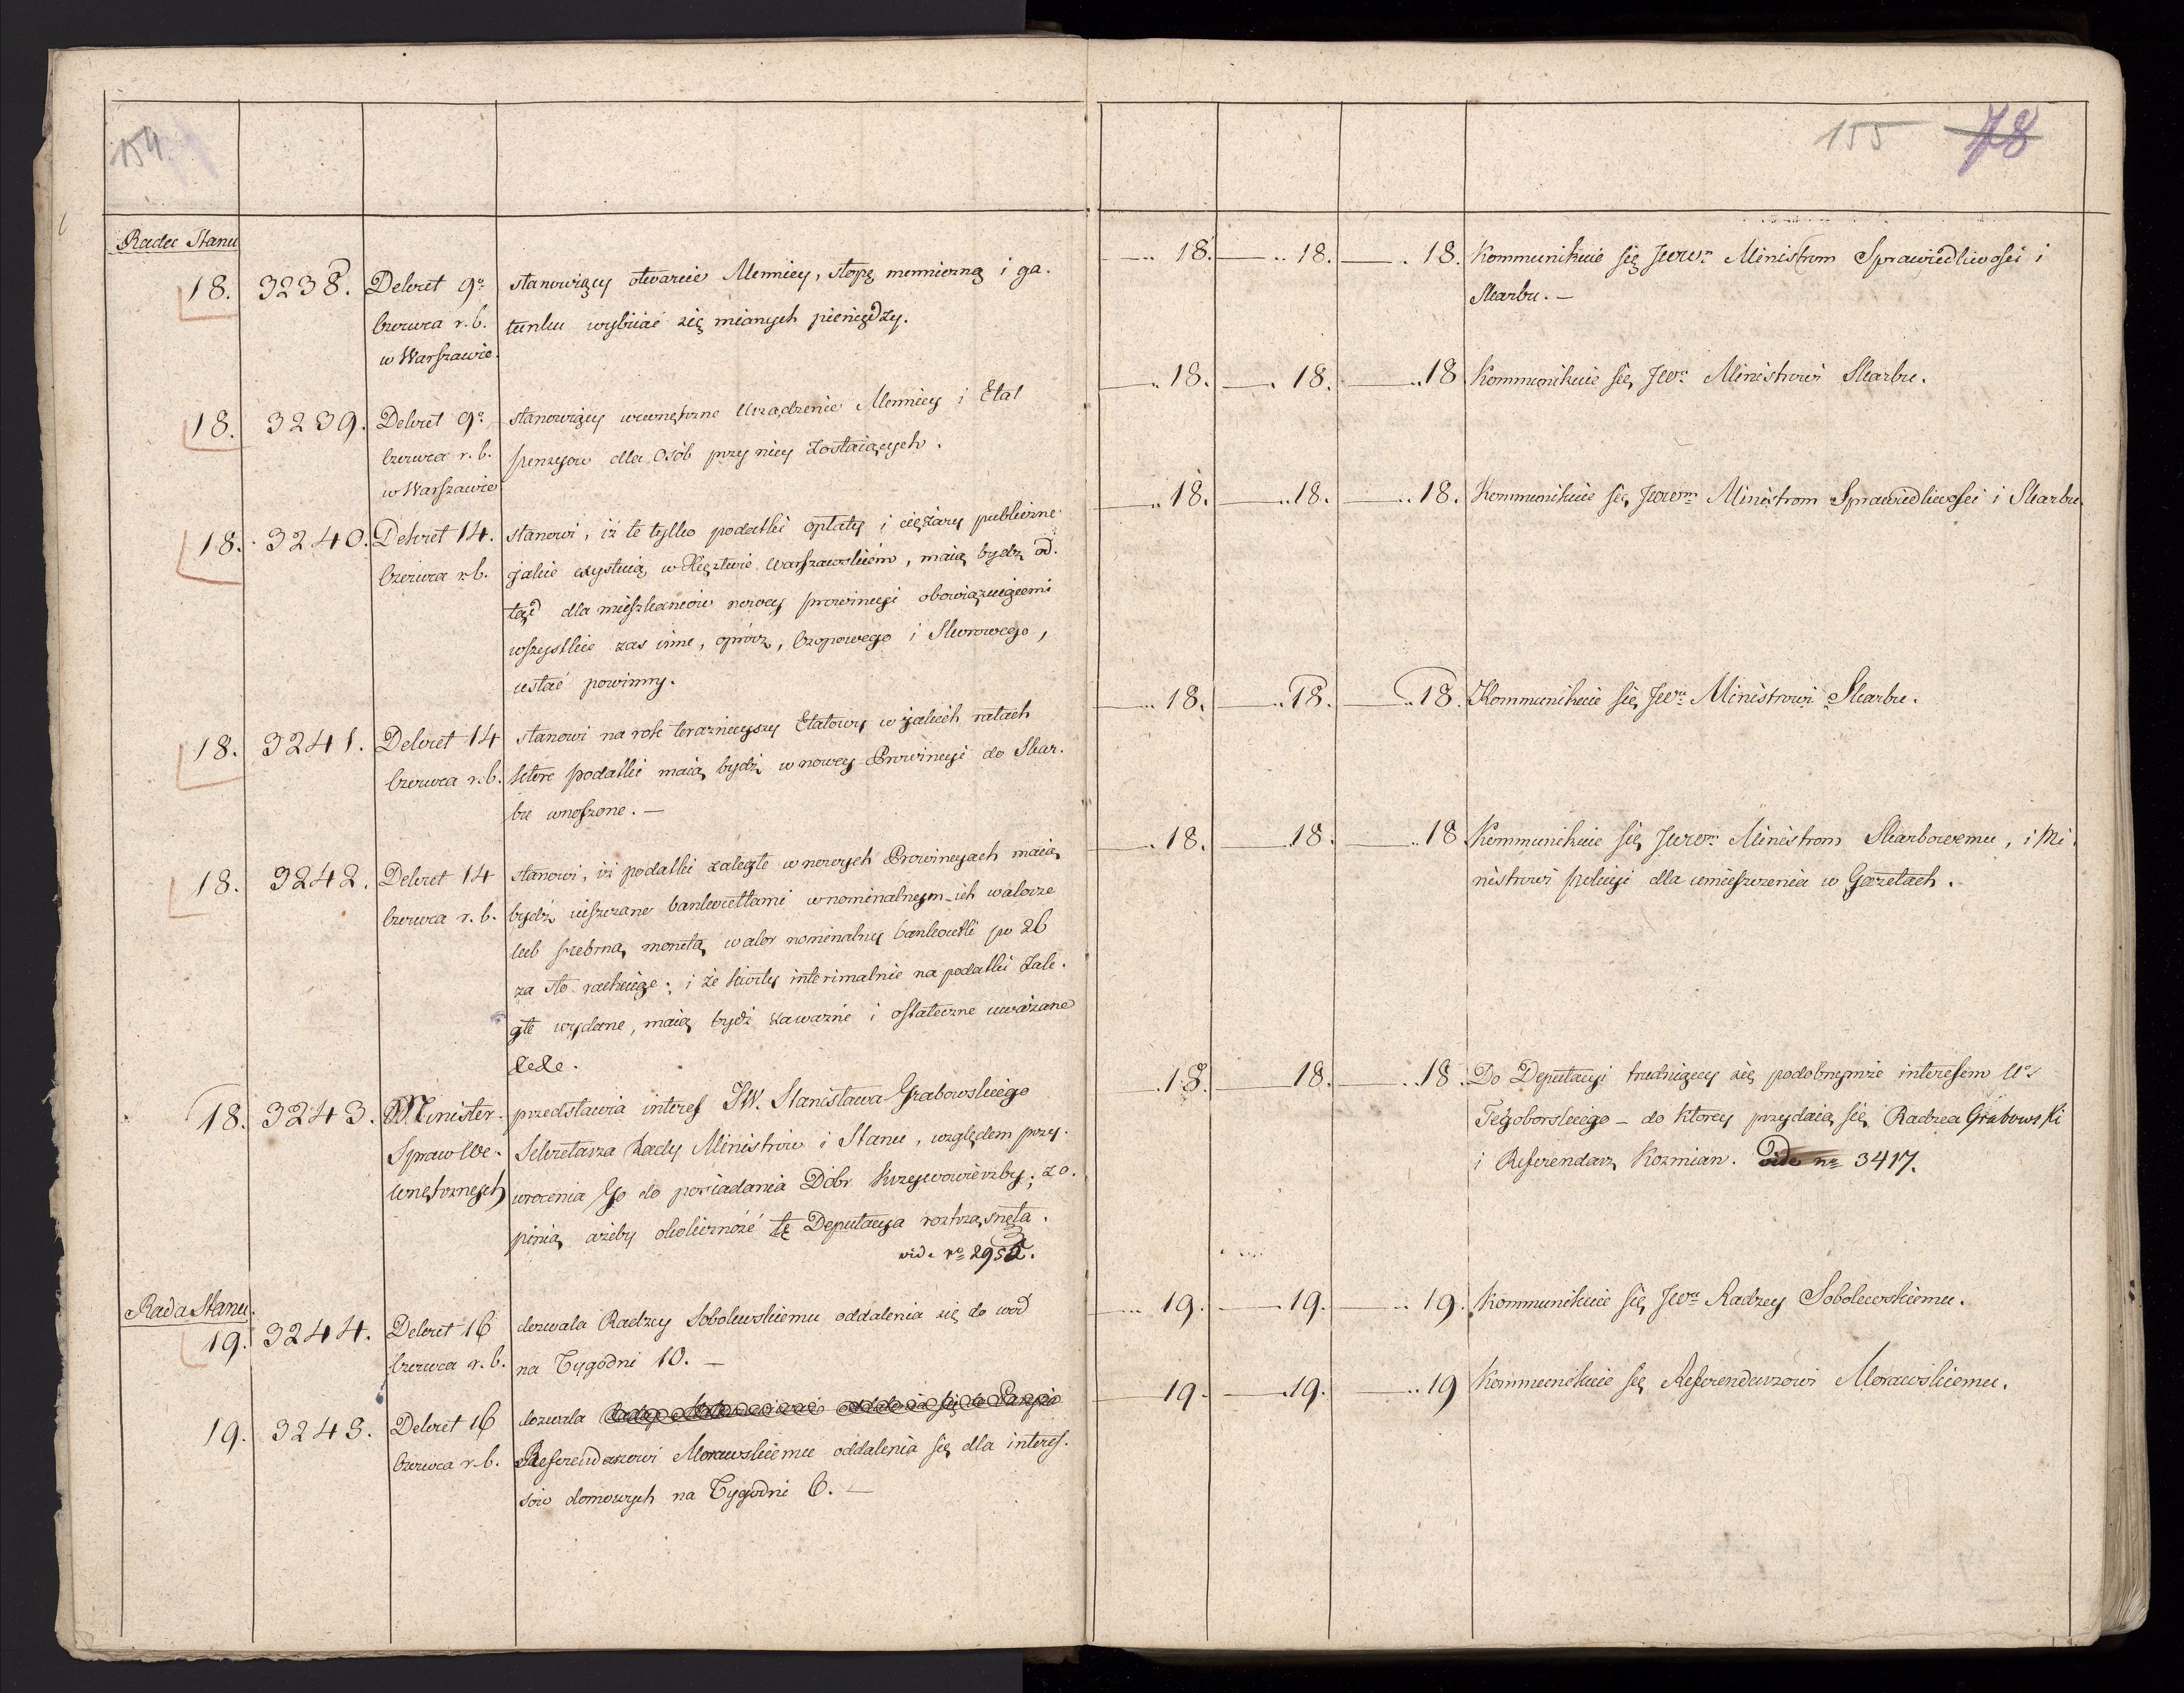 154.
Rada Stanu
18. 3238. Dekret 9º stanowiący otwarcie Mennicy, stopę menniczną i ga-
Czerwca r. b. tunku wybiiać się mianych pieniędzy.
w Warszawie.
18. 3239. Dekret 9º stanowiący wewnętrzne Urządzenie Mennicy i Etat
Czerwca r. b. pensyow dla Osób przy niey zostaiących.
w Warszawie
18. 3240. Dekret 14. stanowi, iż te tylko podatki opłaty i ciężary publiczne
Czerwca r. b. jakie exystuią w Xięztwie Warszawskiém, maią bydz od-
tąd dla mieszkancow nowey prowincyi obowiązuiącemi
wszystkie zas inne, oprócz, Czopowego i Skorowego,
ustać powinny.
18. 3241. Dekret 14 stanowi na rok teraznieyszy Etatowy w jakich ratach
Czerwca r. b. które podatki maią bydź w nowey Prowincyi do Skar-
bu wnoszone. —
18. 3242. Dekret 14 stanowi, iż podatki zaległe w nowych Prowincyach maią
Czerwca r. b. bydź uiszczane bankocetlami w nominalnym ich walorze
lub srebrną monetą walor nominalny bankocetli po 26
za sto rachuiąc; i że kwity interimalnie na podatki zale-
głe wydane, maią bydź za ważne i ostateczne uważane
18. 3243. Minister przedstawia interes JW. Stanisława Grabowskiego
Spraw We- Sekretarza Rady Ministrów i Stanu, względem przy-
wnętrznych wrocenia Go do posiadania Dóbr Krzywowierzby; z o-
pinią ażeby okoliczność tę Deputacya roztrząsnęła.
vide nº 2952.
Rada Stanu.
19. 3244. Dekret 16 dozwala Radzcy Sobolewskiemu oddalenia się do wod
Czerwca r. b. na Tygodni 10. —
19. 3245. Dekret 16 dozwala
Czerwca r. b. Referendarzowi Morawskiemu oddalenia się dla interes-
sów domowych na Tygodni 6. —
155 78
18. 18. 18. Kommunikuie się JWWm Ministrom Sprawiedliwości i
Skarbu. —
18. 18. 18. Kommunikuie się JWu Ministrowi Skarbu.
18. 18. 18. Kommunikuie się JWWm Ministrom Sprawiedliwości i Skarbu.
18. 18. 18. Kommunikuie się JWu Ministrowi Skarbu.
18. 18. 18. Kommunikuie się JWWm Ministrom Skarbowemu, i Mi-
nistrowi policyi dla umieszczenia w Gazetach.
18. 18. 18. Do Deputacyi trudniącey się podobnymże interesem Uº
Tęgoborskiego – do którey przydaią się Radzca Grabowski
i Referendarz Kozmian. vide nº 3417.
19. 19. 19. Kommunikuie się JWu Radzcy Sobolewskiemu.
19. 19. 19 Kommunikuie się Referendarzowi Morawskiemu.